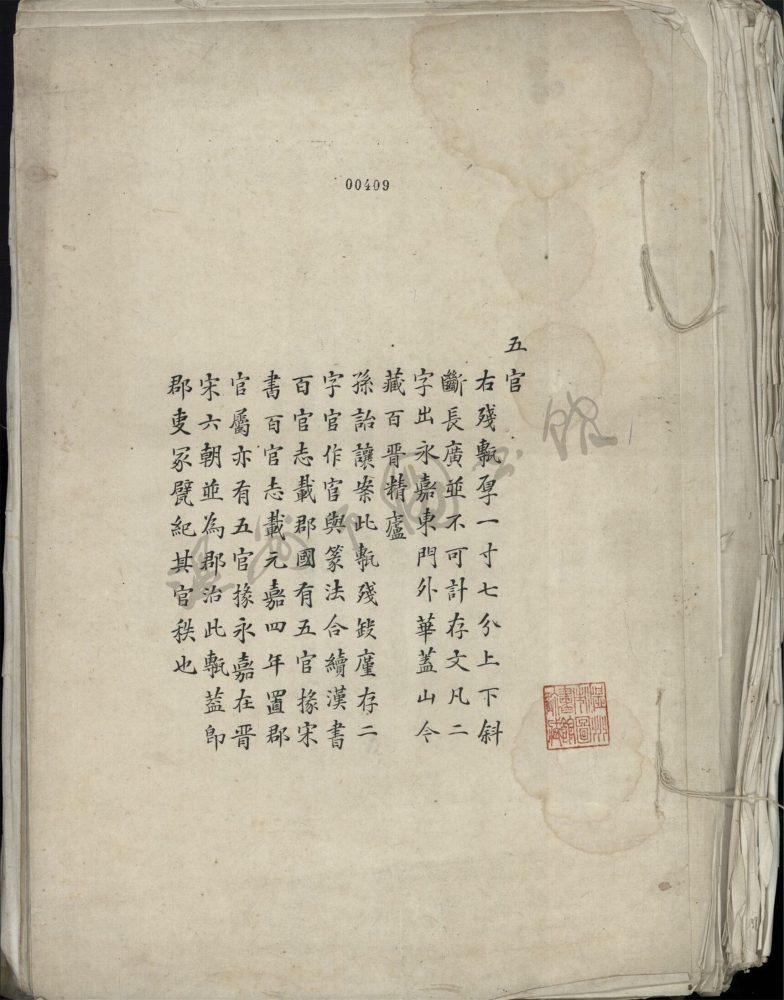 00409
五官
右殘甎厚一寸七分上下斜
斷長廣並不可計存文凡二
字出永嘉東門外華蓋山今
藏百晉精廬
孫詒讓案此甎殘缺廑存二
字官作官與篆法合續漢書
百官志載郡國有五官掾宋
書百官志載元嘉四年置郡
官屬亦有五官掾永嘉在晉
宋六朝並為郡治此甎葢即
郡吏冢甓紀其官秩也
温州市图书馆